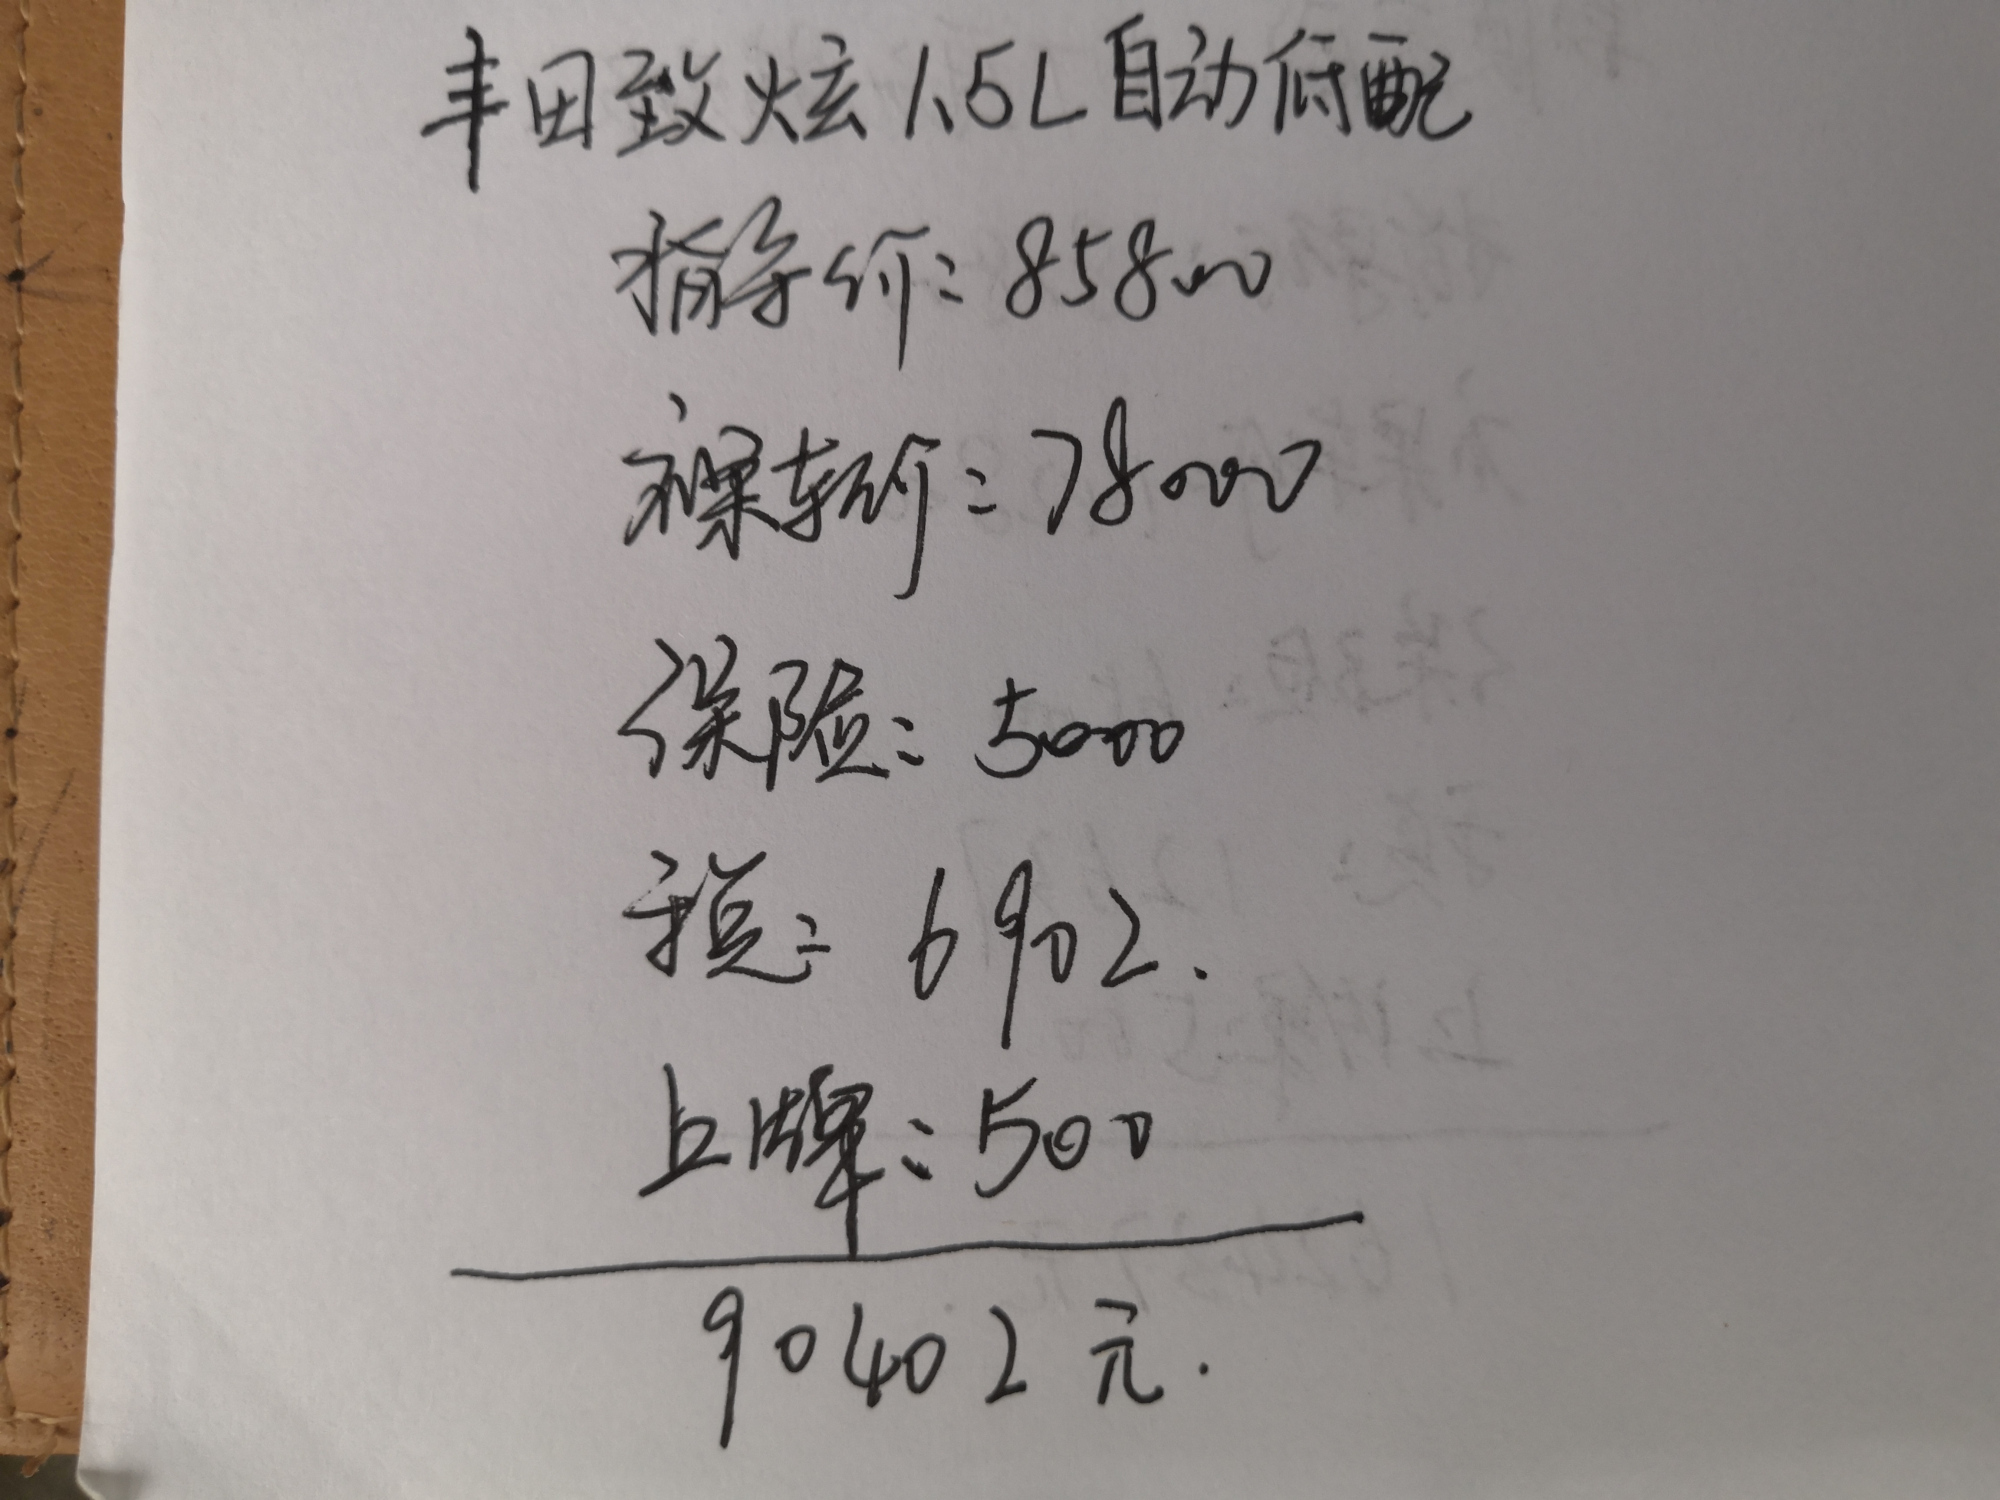 丰田致炫1.5L自动低配
指导价:85800
裸车价:78000
保险:5000
税:6902.
上牌:500
90402元.